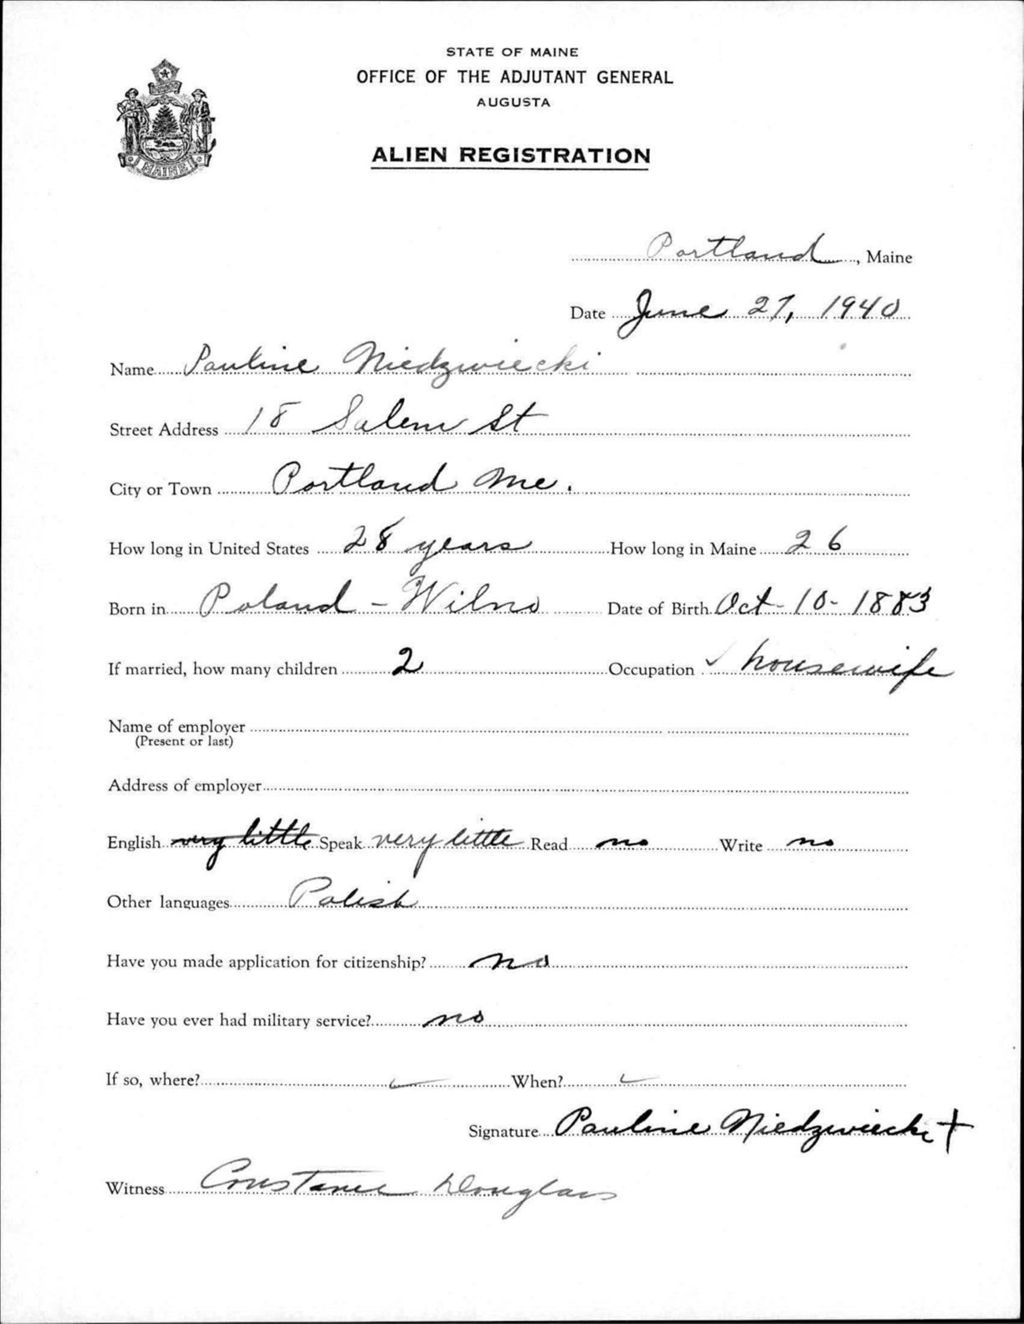 STATE OF MAINE
OFFICE OF THE ADJUTANT GENERAL
AUGUSTA
ALIEN REGISTRATION
MAINE
Portland, Maine
Date June 27, 1940
Name Pauline Niedzwiecki
Street Address 18 Salem St
City or Town Portland Me.
How long in United States 28 years How long in Maine 26
Born in Poland - Wilno Date of Birth Oct - 10 - 1883
If married, how many children 2 Occupation ✓ housewife
Name of employer
(Present or last)
Address of employer
English very little Speak very little Read no Write no
Other languages Polish
Have you made application for citizenship? no
Have you ever had military service? no
If so, where? ✓ When? ✓
Signature Pauline Niedzwiecki +
Witness Constance Douglass